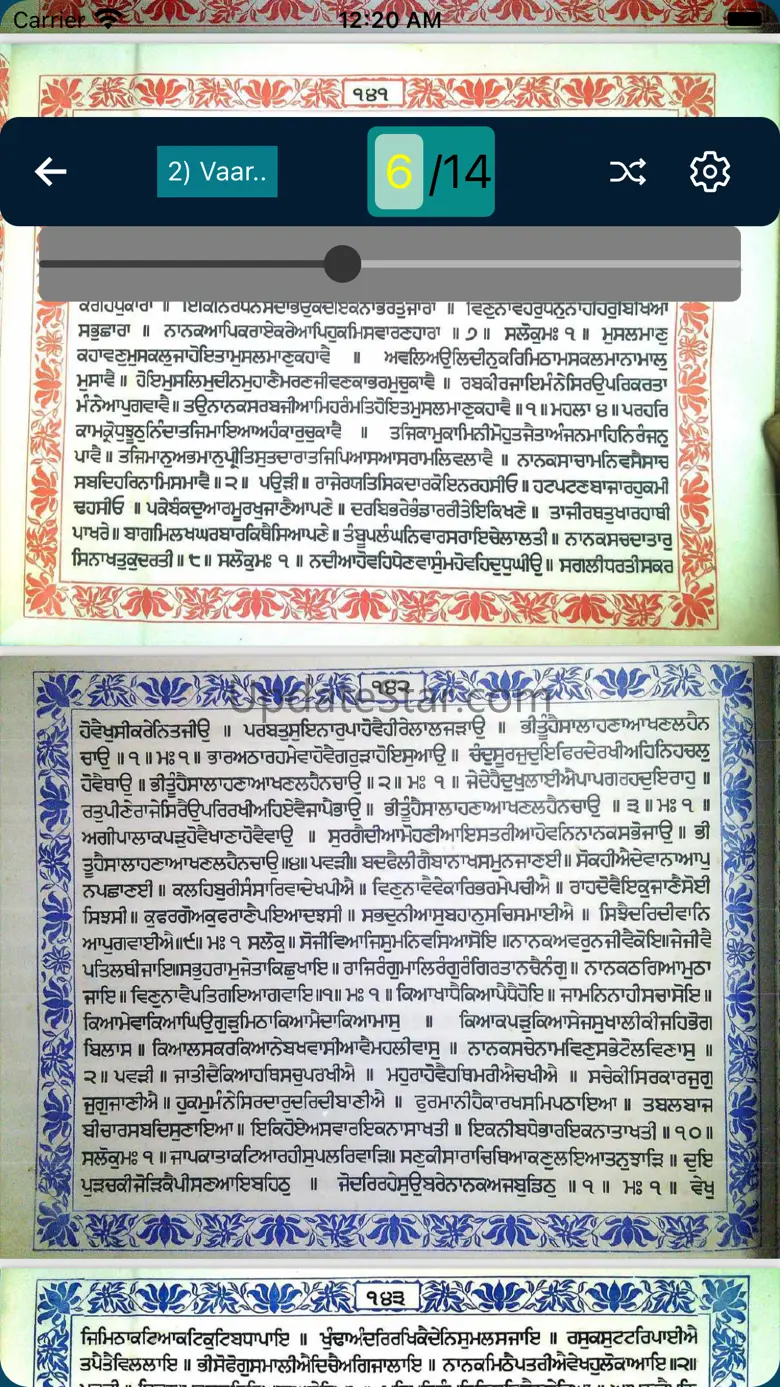 Carrier
12:20 AM
੧੪੧
2) Vaar..
6/14
ਸਭੁਛਾਰਾ ॥ ਨਾਨਕਆਪਿਕਰਾਏਕਰੇਆਪਿਹੁਕਮਿਸਵਾਰਣਹਾਰਾ ॥੭॥ ਸਲੋਕੁਮਃ ੧ ॥ ਮੁਸਲਮਾਣੁ
ਕਹਾਵਣੁਮੁਸਕਲੁਜਾਹੋਇਤਾਮੁਸਲਮਾਣੁਕਹਾਵੈ ॥ ਅਵਲਿਅਉਲਿਦੀਨੁਕਰਿਮਿਠਾਮਸਕਲਮਾਨਾਮਾਲੁ
ਮੁਸਾਵੈ ॥ ਹੋਇਮੁਸਲਿਮੁਦੀਨਮੁਹਾਣੈਮਰਣਜੀਵਣਕਾਭਰਮੁਚੁਕਾਵੈ ॥ ਰਬਕੀਰਜਾਇਮੰਨੇਸਿਰਉਪਰਿਕਰਤਾ
ਮੰਨੇਆਪੁਗਵਾਵੈ ॥ ਤਉਨਾਨਕਸਰਬਜੀਆਮਿਹਰੰਮਤਿਹੋਇਤਮੁਸਲਮਾਣੁਕਹਾਵੈ ॥੧॥ ਮਹਲਾ ੪ ॥ ਪਰਹਰਿ
ਕਾਮਕ੍ਰੋਧੁਝੂਠੁਨਿੰਦਾਤਜਿਮਾਇਆਅਹੰਕਾਰੁਚੁਕਾਵੈ ॥ ਤਜਿਕਾਮੁਕਾਮਿਨੀਮੋਹੁਤਜੈਤਾਅੰਜਨਮਾਹਿਨਿਰੰਜਨੁ
ਪਾਵੈ ॥ ਤਜਿਮਾਨੁਅਭਿਮਾਨੁਪ੍ਰੀਤਿਸੁਤਦਾਰਾਤਜਿਪਿਆਸਆਸਰਾਮਲਿਵਲਾਵੈ ॥ ਨਾਨਕਸਾਚਾਮਨਿਵਸੈਸਾਚ
ਸਬਦਿਹਰਿਨਾਮਿਸਮਾਵੈ ॥੨॥ ਪਉੜੀ ॥ ਰਾਜੇਰਯਤਿਸਿਕਦਾਰਕੋਇਨਰਹਸੀਓ ॥ ਹਟਪਟਣਬਾਜਾਰਹੁਕਮੀ
ਢਹਸੀਓ ॥ ਪਕੇਬੰਕਦੁਆਰਮੂਰਖੁਜਾਣੈਆਪਣੇ ॥ ਦਰਬਿਭਰੇਭੰਡਾਰਰੀਤੇਇਕਿਖਣੇ ॥ ਤਾਜੀਰਥਤੁਖਾਰਹਾਥੀ
ਪਾਖਰੇ ॥ ਬਾਗਮਿਲਖਘਰਬਾਰਕਿਥੈਸਿਆਪਣੇ ॥ ਤੰਬੂਪਲੰਘਨਿਵਾਰਸਰਾਇਚੇਲਾਲਤੀ ॥ ਨਾਨਕਸਚਦਾਤਾਰੁ
ਸਿਨਾਖਤੁਕੁਦਰਤੀ ॥੮॥ ਸਲੋਕੁਮਃ ੧ ॥ ਨਦੀਆਹੋਵਹਿਧੇਣਵਾਸੁੰਮਹੋਵਹਿਦੁਧੁਘੀਉ ॥ ਸਗਲੀਧਰਤੀਸਕਰ
੧੪੨
UpdateStar.com
ਹੋਵੈਖੁਸੀਕਰੇਨਿਤਜੀਉ ॥ ਪਰਬਤੁਸੁਇਨਾਰੁਪਾਹੋਵੈਹੀਰੇਲਾਲਜੜਾਉ ॥ ਭੀਤੂੰਹੈਸਾਲਾਹਣਾਆਖਣਲਹੈਨ
ਚਾਉ ॥੧॥ ਮਃ੧ ॥ ਭਾਰਅਠਾਰਹਮੇਵਾਹੋਵੈਗਰੁੜਾਹੋਇਸੁਆਉ ॥ ਚੰਦੁਸੂਰਜੁਦੁਇਫਿਰਦੇਰਖੀਅਹਿਨਿਹਚਲੁ
ਹੋਵੈਥਾਉ ॥ ਭੀਤੂੰਹੈਸਾਲਾਹਣਾਆਖਣਲਹੈਨਚਾਉ ॥੨॥ ਮਃ ੧ ॥ ਜੇਦੇਹੈਦੁਖੁਲਾਈਐਪਾਪਗਰਹਦੁਇਰਾਹੁ ॥
ਰਤੁਪੀਣੇਰਾਜੇਸਿਰੈਉਪਰਿਰਖੀਅਹਿਏਵੈਜਾਪੈਭਾਉ ॥ ਭੀਤੂੰਹੈਸਾਲਾਹਣਾਆਖਣਲਹੈਨਚਾਉ ॥੩॥ ਮਃ ੧ ॥
ਅਗੀਪਾਲਾਕਪੜੁਹੋਵੈਖਾਣਾਹੋਵੈਵਾਉ ॥ ਸੁਰਗੈਦੀਆਮੋਹਣੀਆਇਸਤਰੀਆਹੋਵਨਿਨਾਨਕਸਭੋਜਾਉ ॥ ਭੀ
ਤੂਹੈਸਾਲਾਹਣਾਆਖਣਲਹੈਨਚਾਉ ॥੪॥ ਪਵੜੀ ॥ ਬਦਫੈਲੀਗੈਬਾਨਾਖਸਮੁਨਜਾਣਈ ॥ ਸੋਕਹੀਐਦੇਵਾਨਾਆਪੁ
ਨਪਛਾਣਈ ॥ ਕਲਹਿਬੁਰੀਸੰਸਾਰਿਵਾਦੇਖਪੀਐ ॥ ਵਿਣੁਨਾਵੈਵੇਕਾਰਿਭਰਮੇਪਚੀਐ ॥ ਰਾਹਦੋਵੈਇਕੁਜਾਣੈਸੋਈ
ਸਿਝਸੀ ॥ ਕੁਫਰਗੋਅਕੁਫਰਾਣੈਪਇਆਦਝਸੀ ॥ ਸਭਦੁਨੀਆਸੁਬਹਾਨੁਸਚਿਸਮਾਈਐ ॥ ਸਿਝੈਦਰਿਦੀਵਾਨਿ
ਆਪੁਗਵਾਈਐ ॥੯॥ ਮਃ ੧ ਸਲੋਕੁ ॥ ਸੋਜੀਵਿਆਜਿਸੁਮਨਿਵਸਿਆਸੋਇ ॥ ਨਾਨਕਅਵਰੁਨਜੀਵੈਕੋਇ ॥ ਜੇਜੀਵੈ
ਪਤਿਲਥੀਜਾਇ ॥ ਸਭੁਹਰਾਮੁਜੇਤਾਕਿਛੁਖਾਇ ॥ ਰਾਜਿਰੰਗੁਮਾਲਿਰੰਗੁਰੰਗਿਰਤਾਨਚੈਨੰਗੁ ॥ ਨਾਨਕਠਗਿਆਮੁਠਾ
ਜਾਇ ॥ ਵਿਣੁਨਾਵੈਪਤਿਗਇਆਗਵਾਇ ॥੧॥ ਮਃ ੧ ॥ ਕਿਆਖਾਧੈਕਿਆਪੈਧੈਹੋਇ ॥ ਜਾਮਨਿਨਾਹੀਸਚਾਸੋਇ ॥
ਕਿਆਮੇਵਾਕਿਆਘਿਉਗੁੜੁਮਿਠਾਕਿਆਮੈਦਾਕਿਆਮਾਸੁ ॥ ਕਿਆਕਪੜੁਕਿਆਸੇਜਸੁਖਾਲੀਕੀਜਹਿਭੋਗ
ਬਿਲਾਸ ॥ ਕਿਆਲਸਕਰਕਿਆਨੇਬਖਵਾਸੀਆਵੈਮਹਲੀਵਾਸੁ ॥ ਨਾਨਕਸਚੇਨਾਮਵਿਣੁਸਭੇਟੋਲਵਿਣਾਸੁ ॥
੨॥ ਪਵੜੀ ॥ ਜਾਤੀਦੈਕਿਆਹਥਿਸਚੁਪਰਖੀਐ ॥ ਮਹੁਰਾਹੋਵੈਹਥਿਮਰੀਐਚਖੀਐ ॥ ਸਚੇਕੀਸਿਰਕਾਰਜੁਗੁ
ਜੁਗੁਜਾਣੀਐ ॥ ਹੁਕਮੁਮੰਨੇਸਿਰਦਾਰੁਦਰਿਦੀਬਾਣੀਐ ॥ ਫੁਰਮਾਨੀਹੈਕਾਰਖਸਮਿਪਠਾਇਆ ॥ ਤਬਲਬਾਜ
ਬੀਚਾਰਸਬਦਿਸੁਣਾਇਆ ॥ ਇਕਿਹੋਏਅਸਵਾਰਇਕਨਾਸਾਖਤੀ ॥ ਇਕਨੀਬਧੇਭਾਰਇਕਨਾਤਾਖਤੀ ॥੧੦॥
ਸਲੋਕੁਮਃ ੧ ॥ ਜਾਪਕਾਤਾਕਟਿਆਰਹੀਸੁਪਲਰਿਵਾੜਿ ॥ ਸਣੁਕੀਸਾਰਾਚਿਥਿਆਕਣੁਲਇਆਤਨੁਝਾੜਿ ॥ ਦੁਇ
ਪੁੜਚਕੀਜੋੜਿਕੈਪੀਸਣਆਇਬਹਿਠੁ ॥ ਜੋਦਰਿਰਹੇਸੁਉਬਰੇਨਾਨਕਅਜਬੁਡਿਠੁ ॥੧॥ ਮਃ ੧ ॥ ਵੇਖੁ
੧੪੩
ਜਿਮਿਠਾਕਟਿਆਕਟਿਕੁਟਿਬਧਾਪਾਇ ॥ ਖੁੰਢਾਅੰਦਰਿਰਖਿਕੈਦੇਨਿਸੁਮਲਸਜਾਇ ॥ ਰਸੁਕਸੁਟਟਰਿਪਾਈਐ
ਤਪੈਤੈਵਿਲਲਾਇ ॥ ਭੀਸੋਫੋਗੁਸਮਾਲੀਐਦਿਚੈਅਗਿਜਾਲਾਇ ॥ ਨਾਨਕਮਿਠੈਪਤਰੀਐਵੇਖਹੁਲੋਕਾਆਇ ॥੨॥